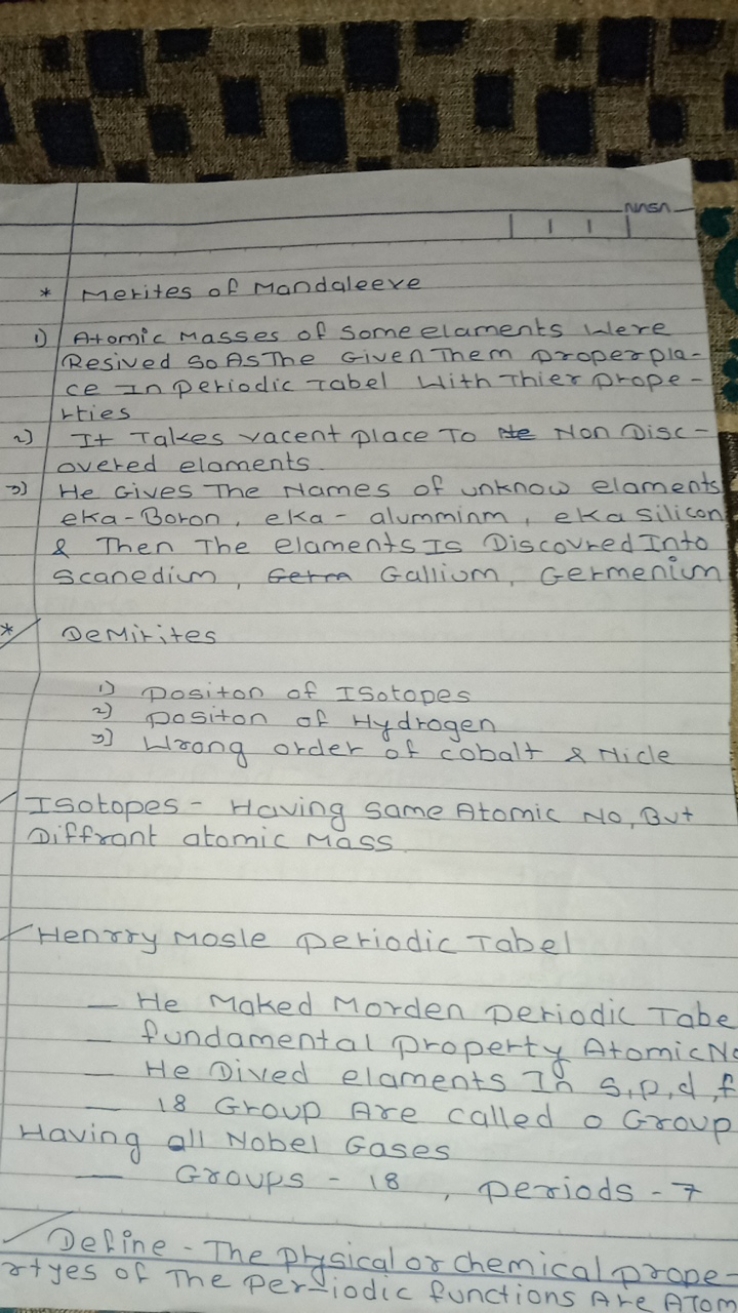 * Merites of Mandaleeve
1) Atomic Masses of Some elaments Were
Resived So As The Given Them Proper pla-
ce In periodic Tabel With Thier prope-
rties
2) It Takes vacent place To Non Disc-
overed elaments.
3) He Gives The Names of unknow elaments
eka-Boron, eka-alumminm, eka silicon
& Then The elaments Is Discovred Into
Scanedium, Gallium, Germenium
* DeMirites
1) Positon of ISotopes
2) Positon of Hydrogen
3) Wrong order of cobalt & Nicle
Isotopes - Having Same Atomic No, But
Diffrant atomic Mass.
Henrry Mosle Periodic Tabel
— He Maked Morden Periodic Tabe
— fundamental Property Atomic No
— He Dived elaments In s,p,d,f
— 18 Group Are called o Group
Having all Nobel Gases
— Groups - 18, periods - 7
Define - The physical or chemical prope-
rtyes of The Per-iodic functions Are ATom